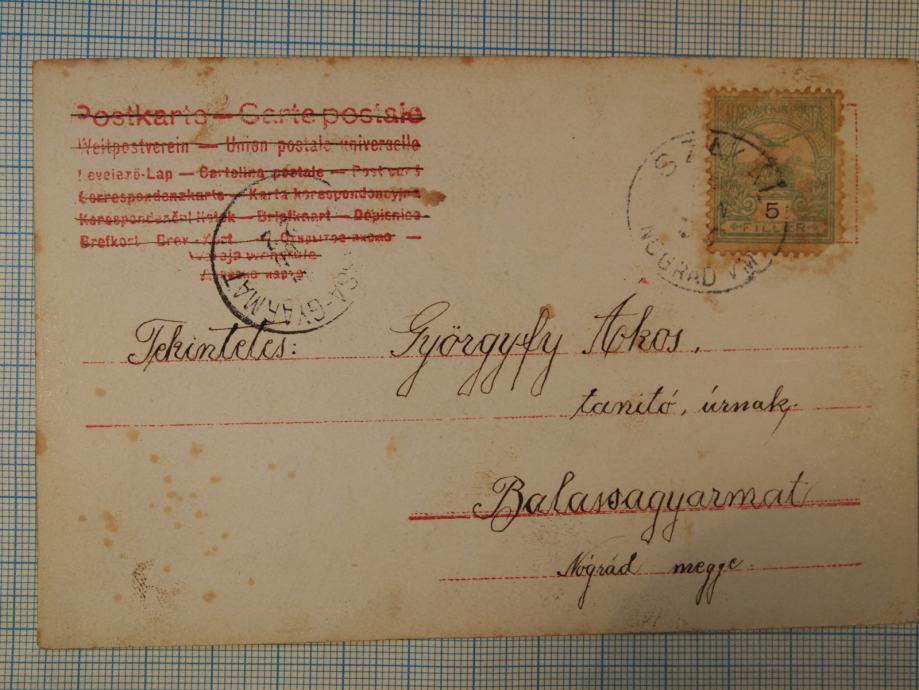 Postkarte — Carte postale
Weltpostverein — Union postale universelle
Levelező-Lap — Cartolina postale — Post card
Correspondenzkarte — Karta korespondencyjna
Korespondenční lístek — Briefkaart — Dopisnice
Brefkort — Brev-Kort — Открытое письмо —
5
FILLÉR
NÓGRÁD VM
GYARMAT
Tekintetes: Györgyfy Ákos,
tanító, úrnak.
Balassagyarmat
Nógrád megye.